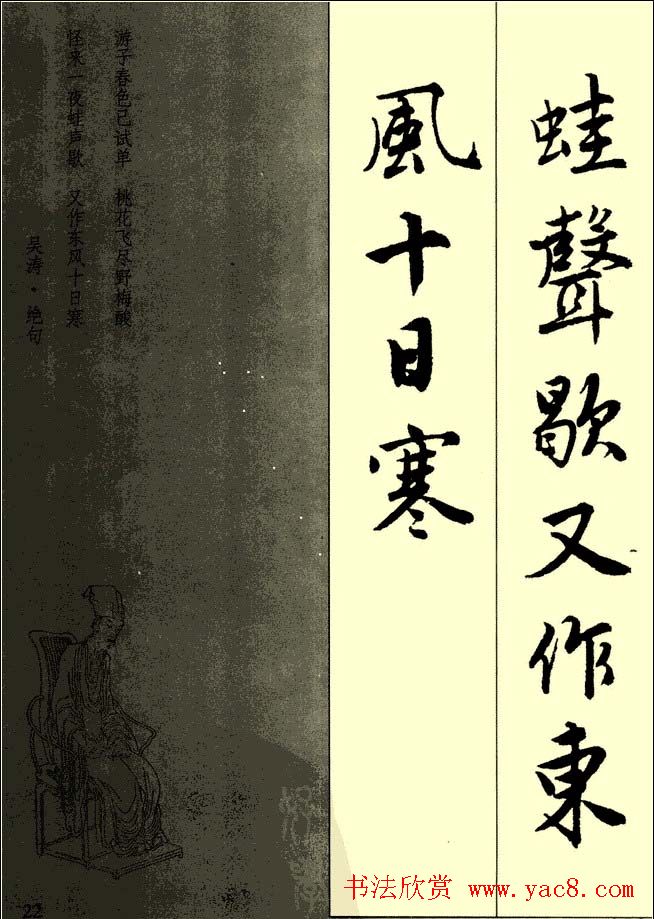 蛙聲歇又作東
風十日寒
游子春色已试单 桃花飞尽野梅酸
怪来一夜蛙声歇 又作东风十日寒
吴涛·绝句
22
书法欣赏 www.yac8.com